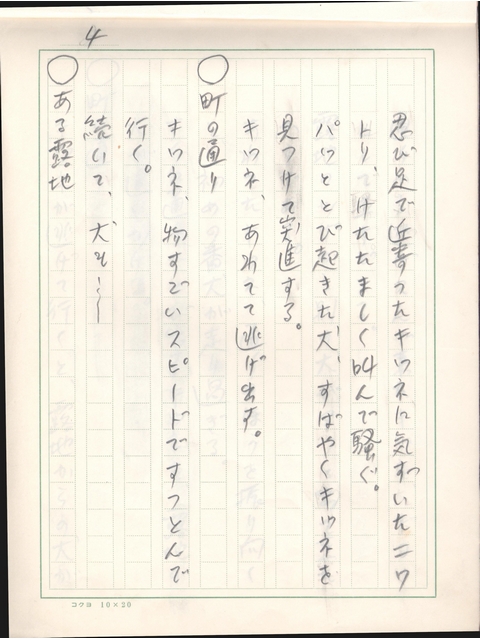 4
忍び足で近寄ったキツネに気ずいたニワ
トリ、けたたましく叫んで騒ぐ。
パッととび起きた犬、すばやくキツネを
見つけて突進する。
キツネ、あわてて逃げ出す。
○町の通り
キツネ、物すごいスピードですっとんで
行く。
続いて、犬も――
○ある露地
コクヨ 10×20